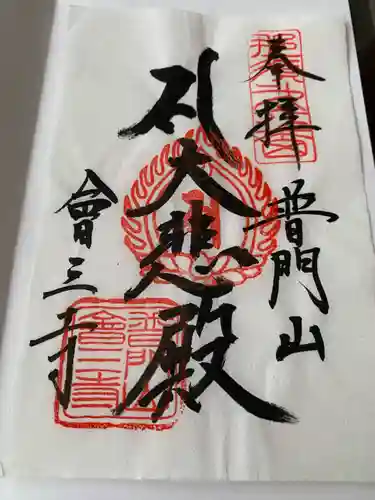 奉拝
普門山
礼大悲殿
會三寺